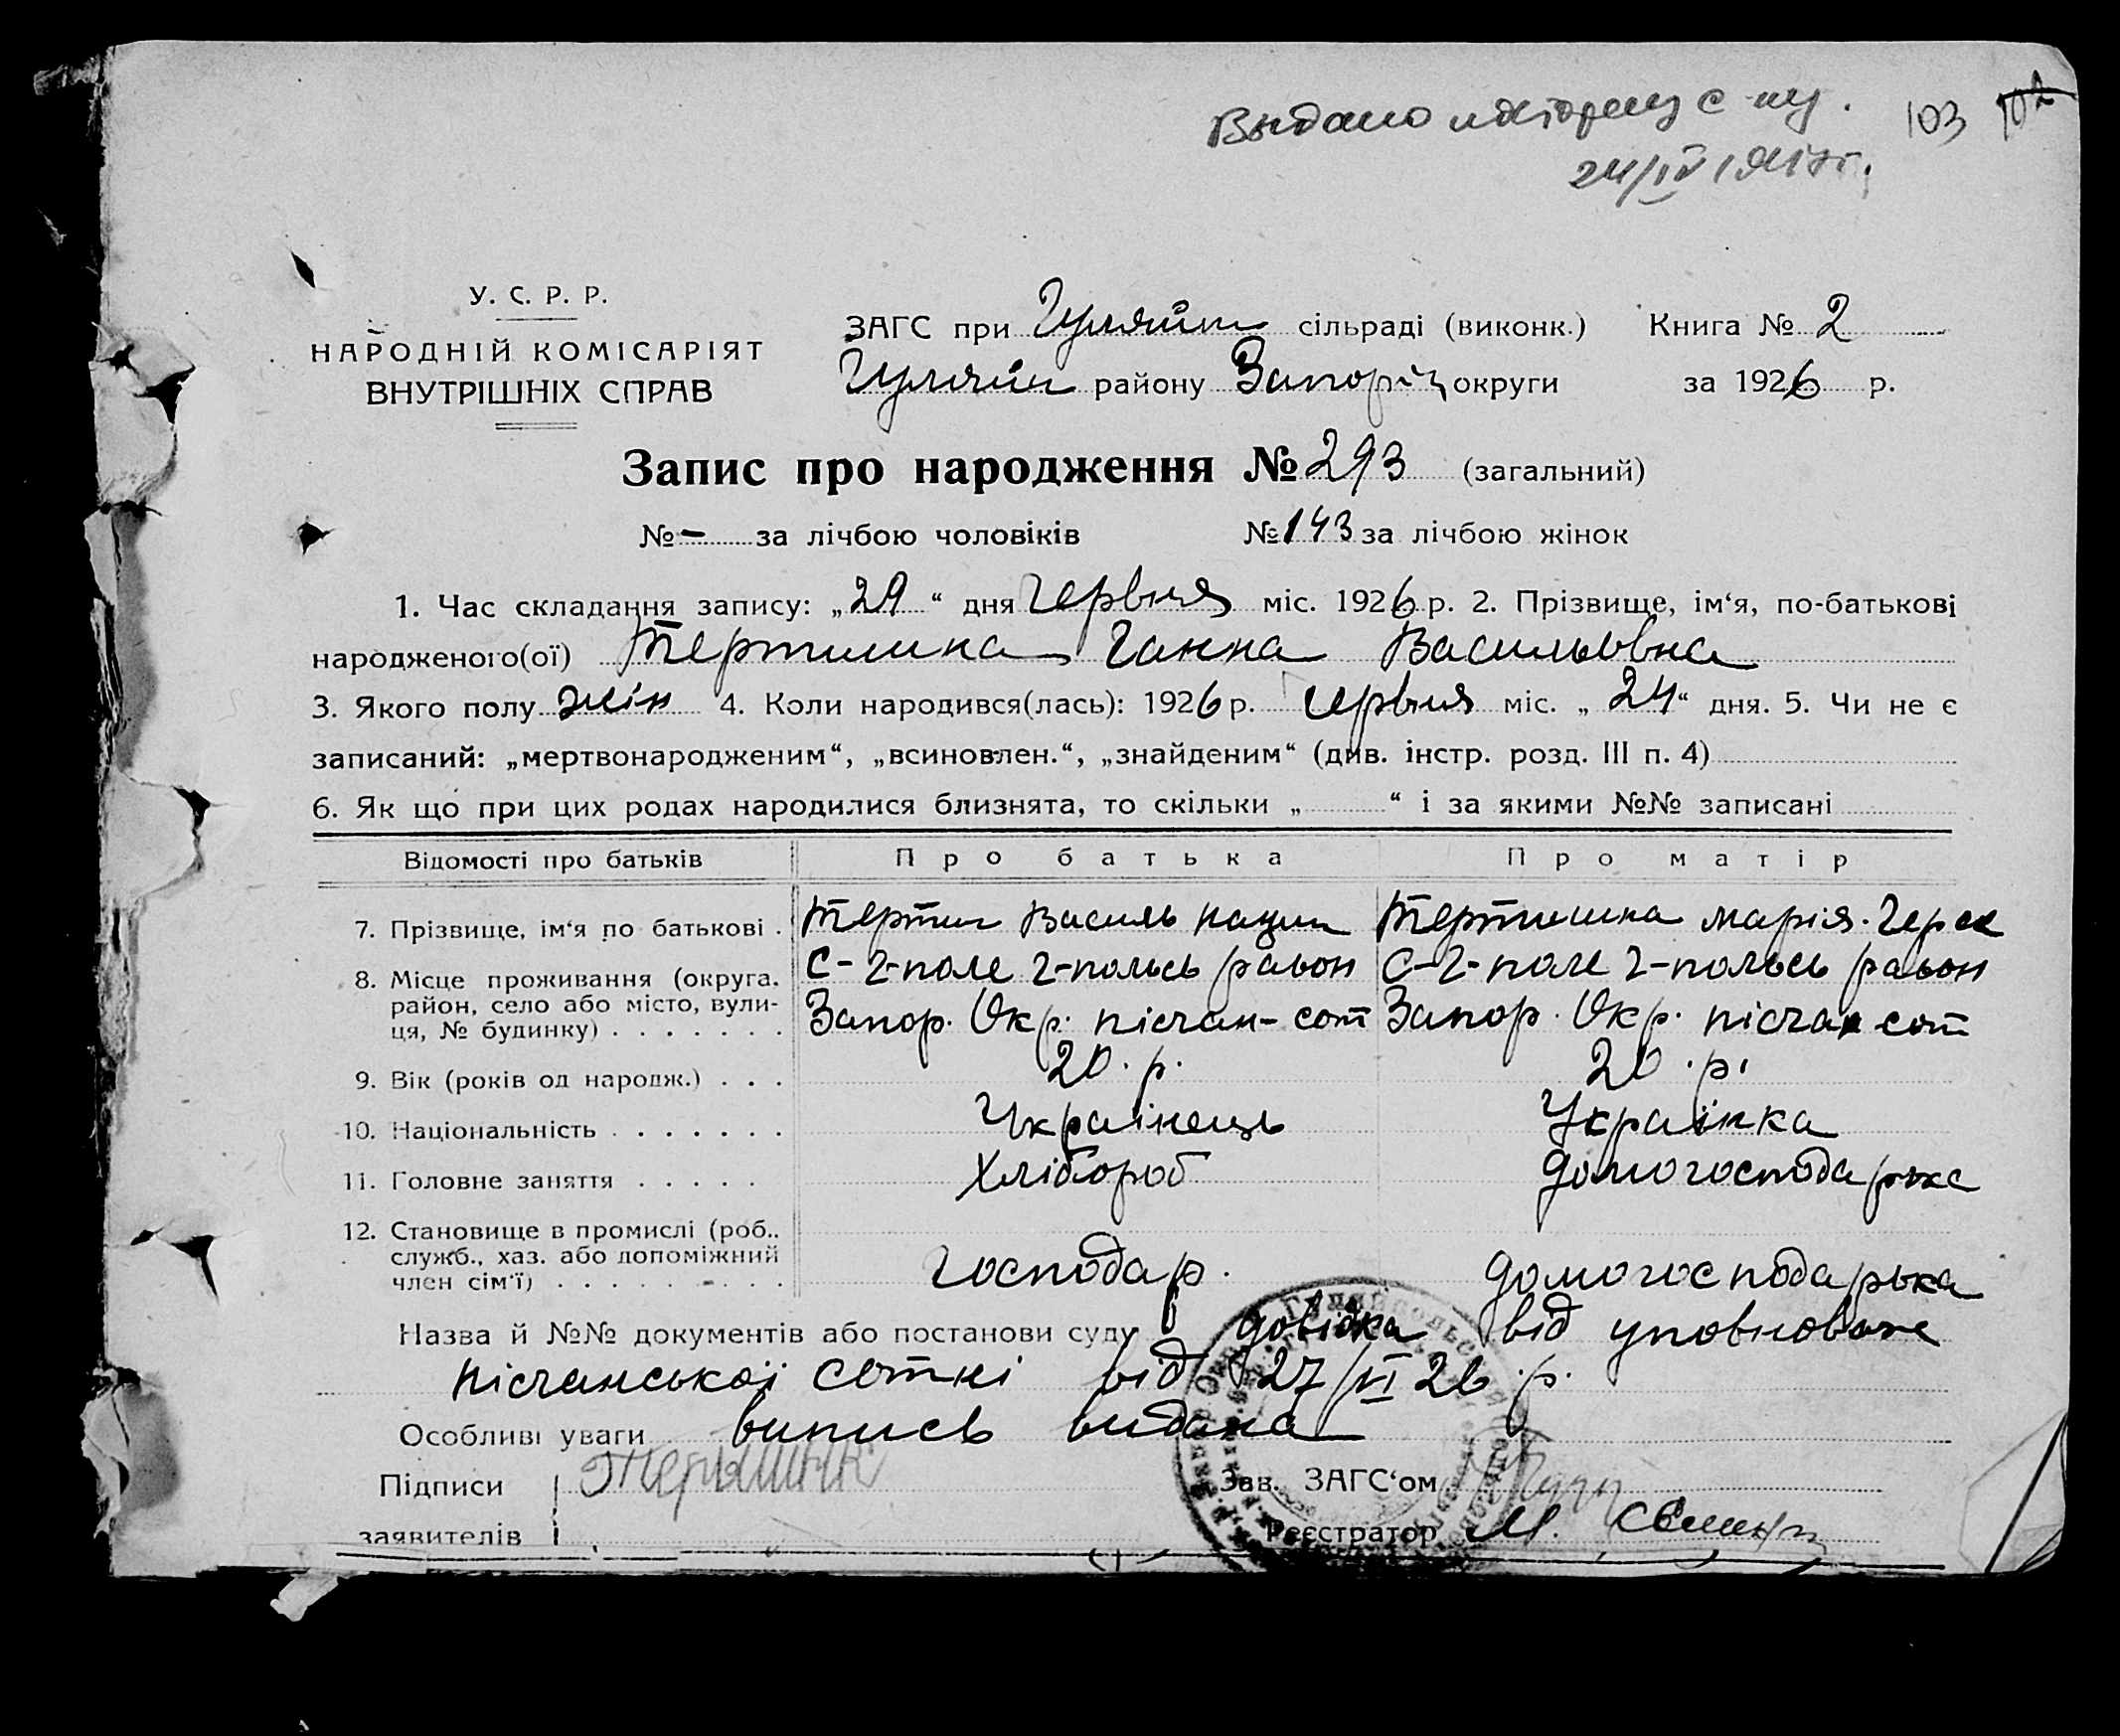 Выдано повторну с-му. 103 102
24/IV
У. С. Р. Р.
НАРОДНІЙ КОМІСАРІЯТ
ВНУТРІШНІХ СПРАВ
ЗАГС при Гуляйп сільраді (виконк.) Книга № 2
Гуляйп району Запоріз округи за 1926 р.
Запис про народження № 293 (загальний)
№ - за лічбою чоловіків № 143 за лічбою жінок
1. Час складання запису: „29“ дня Червня міс. 1926 р. 2. Прізвище, ім‘я, по-батькові
народженого(ої) Тертишна Ганна Васильовна
3. Якого полу жін 4. Коли народився(лась): 1926 р. червня міс. „24“ дня. 5. Чи не є
записаний: „мертвонародженим“, „всиновлен.“, „знайденим“ (див. інстр. розд. III п. 4)
6. Як що при цих родах народилися близнята, то скільки „ “ і за якими №№ записані
Відомості про батьків Про батька Про матір
7. Прізвище, ім‘я по батькові . Тертиш Василь Тертишна Марія
8. Місце проживання (округа, район, село або місто, вулиця, № будинку) . . . . . . . С-Г-поле Г-польсь район С-Г-поле Г-польсь район
Запор. Окр. пісчан-сот Запор. Окр. пісчан сот
9. Вік (років од народж.) . . . 20. р. 20. р.
10. Національність . . . . . . . Українець Українка
11. Головне заняття . . . . . Хлібороб домогосподарька
12. Становище в промислі (роб., служб., хаз. або допоміжний член сім‘ї) . . . . . . . . . Господар. домогосподарька
Назва й №№ документів або постанови суду довідка від уповноваже
пісчанської сотні від 27/VI 26 р.
Особливі уваги випись видана
Підписи Зав. ЗАГС‘ом
заявителів Реєстратор М.